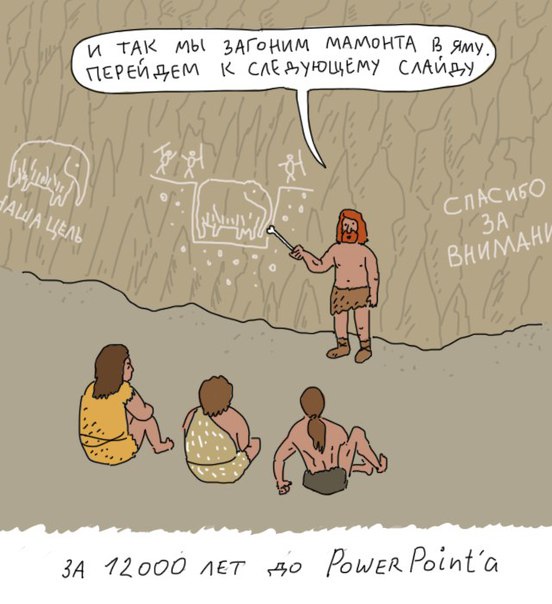 И ТАК МЫ ЗАГОНИМ МАМОНТА В ЯМУ.
ПЕРЕЙДЕМ К СЛЕДУЮЩЕМУ СЛАЙДУ
НАША ЦЕЛЬ
СПАСИБО
ЗА
ВНИМАНИ
ЗА 12000 ЛЕТ ДО POWERPOINT'а